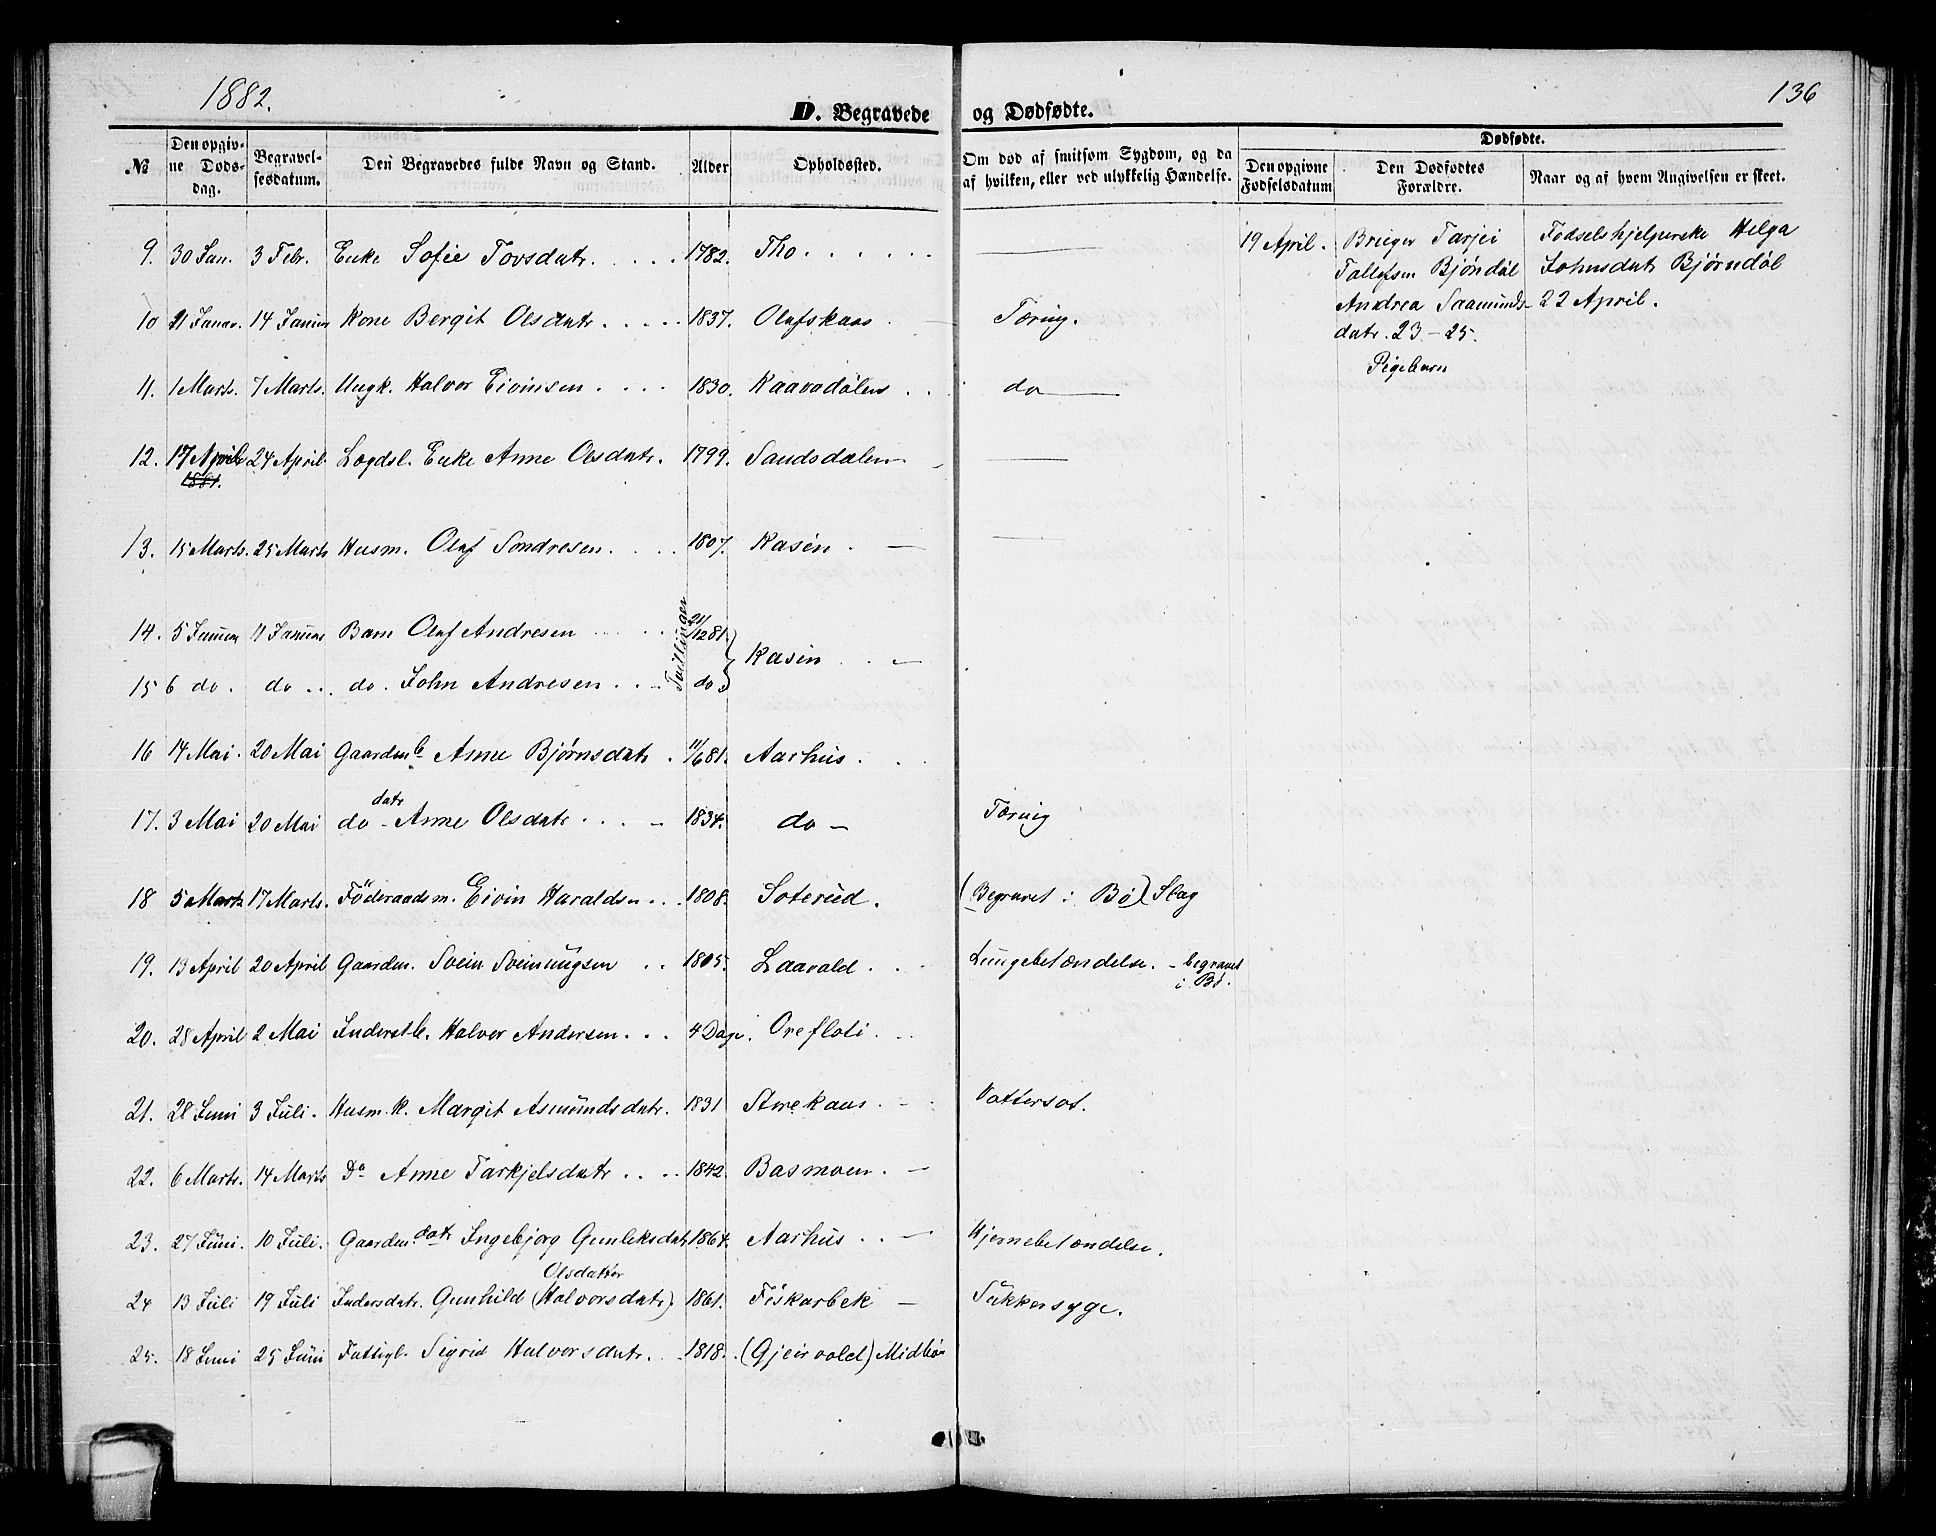 1882.
136
D. Begravede og Dødfødte.
№ Den opgivne Dødsdag. Begravelsesdatum. Den Begravedes fulde Navn og Stand. Alder Opholdssted. Om død af smitsom Sygdom, og da af hvilken, eller ved ulykkelig Hændelse. Dødfødte. Den opgivne Fødselsdatum Den Dødfødtes Forældre. Naar og af hvem Angivelsen er skeet.
9. 30 Jan. 3 Febr. Enke Sofie Tovsdatr. 1782. Tho
10 21 Januar. 14 Januar Kone Bergit Olsdatr. 1837. Olafskaas Tæring.
11. 1 Marts. 7 Marts. Ungk. Halvor Eivinsen 1830. Kaavadølen do
12. 17 April 1881. 24 April. Lægdsl. Enke Anne Olsdatr. 1799. Sandsdalen
13. 15 Marts. 25 Marts Husm. Olaf Sondresen 1807. Kasin
14. 5 Januar 11 Januar Barn Olaf Andresen Tvillinger 21/12 81. Kasin
15 6 do. do do. John Andresen do
16 14 Mai. 20 Mai Gaardm.b Anne Bjørnsdatr 11/6 81. Aarhus.
17. 3 Mai 20 Mai do datr Anne Olsdatr 1834. do Tæring
18 5 Marts 17 Marts. Föderaadsm. Eivin Haraldsen 1808. Soterud. (Begravet i Bø) Slag
19. 13 April 20 April Gaardm. Svein Sveinungsen 1805. Laavald Lungebetændelse. - begravet i Bø.
20. 28 April 2 Mai Inderstb. Halvor Andersen 4 Dage. Orefloti
21. 28 Juni 3 Juli. Husm. K. Margit Asmundsdatr. 1831 Storekaas Vattersot.
22. 6 Marts. 14 Marts Do Anne Tarkjelsdatr 1842. Basmoen.
23. 27 Juni. 10 Juli. Gaardm. datr Ingebjorg Gunleksdatr 1864. Aarhus Hjernebetændelse.
24 13 Juli 19 Juli Indersdatr. Gunhild (Halvorsdatr) Olsdatter 1861. Fiskarbek Sukkersyge.
25. 18 Juni 25 Juni Fattigl. Sigrid Halvorsdatr. 1818. (Gjeirvold) Midbøn
19 April. Bruger Tarjei Tollefsen Bjöndøl Andrea Saamundsdatr. 23 - 25. Pigebarn
Fødselshjelperske Helga Johnsdatr Bjørndøl 22 April.